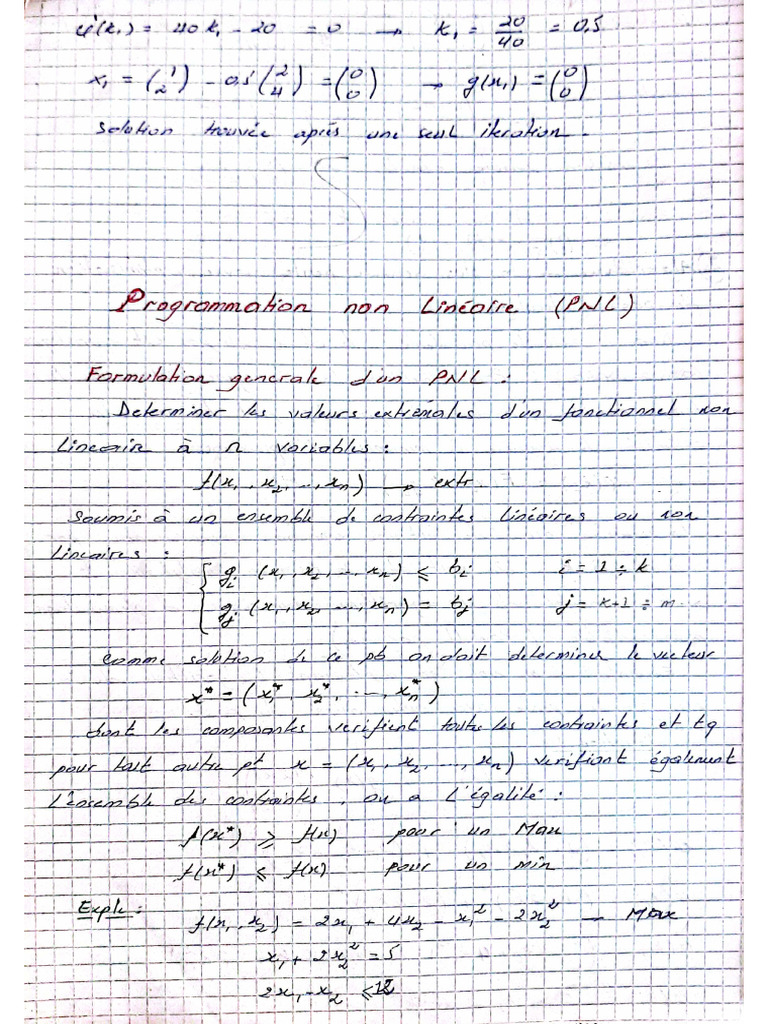 φ'(k₁) = 40 k₁ - 20 = 0 → k₁ = 20/40 = 0.5
x₁ = (1 2) - 0.5 (2 4) = (0 0) → g(x₁) = (0 0)
solution trouvée après une seul iteration.
Programmation non Linéaire (PNL)
Formulation generale d'un PNL :
Determiner les valeurs extrémales d'un fonctionnel non
Lineair à n variables :
f(x₁, x₂, ..., xₙ) → extr.
Soumis à un ensemble de contraintes linéaires ou non
Lineaires :
gᵢ (x₁, x₂, ..., xₙ) ≤ bᵢ i = 1 ÷ k
gⱼ (x₁, x₂, ..., xₙ) = bⱼ j = k+1 ÷ m
comme solution de ce pb on doit determiner le vecteur
x* = (x₁*, x₂*, ..., xₙ*)
dont les composantes verifient toutes les contraintes et tq
pour tout autre pt x = (x₁, x₂, ..., xₙ) verifiant également
L'ensemble des contraintes, on a L'égalité :
f(x*) ≥ f(x) pour un Max
f(x*) ≤ f(x) pour un min
Exple : f(x₁, x₂) = 2x₁ + 4x₂ - x₁² - 2x₂² → Max
x₁ + 2x₂² = 5
2x₁ - x₂ ≤ 12